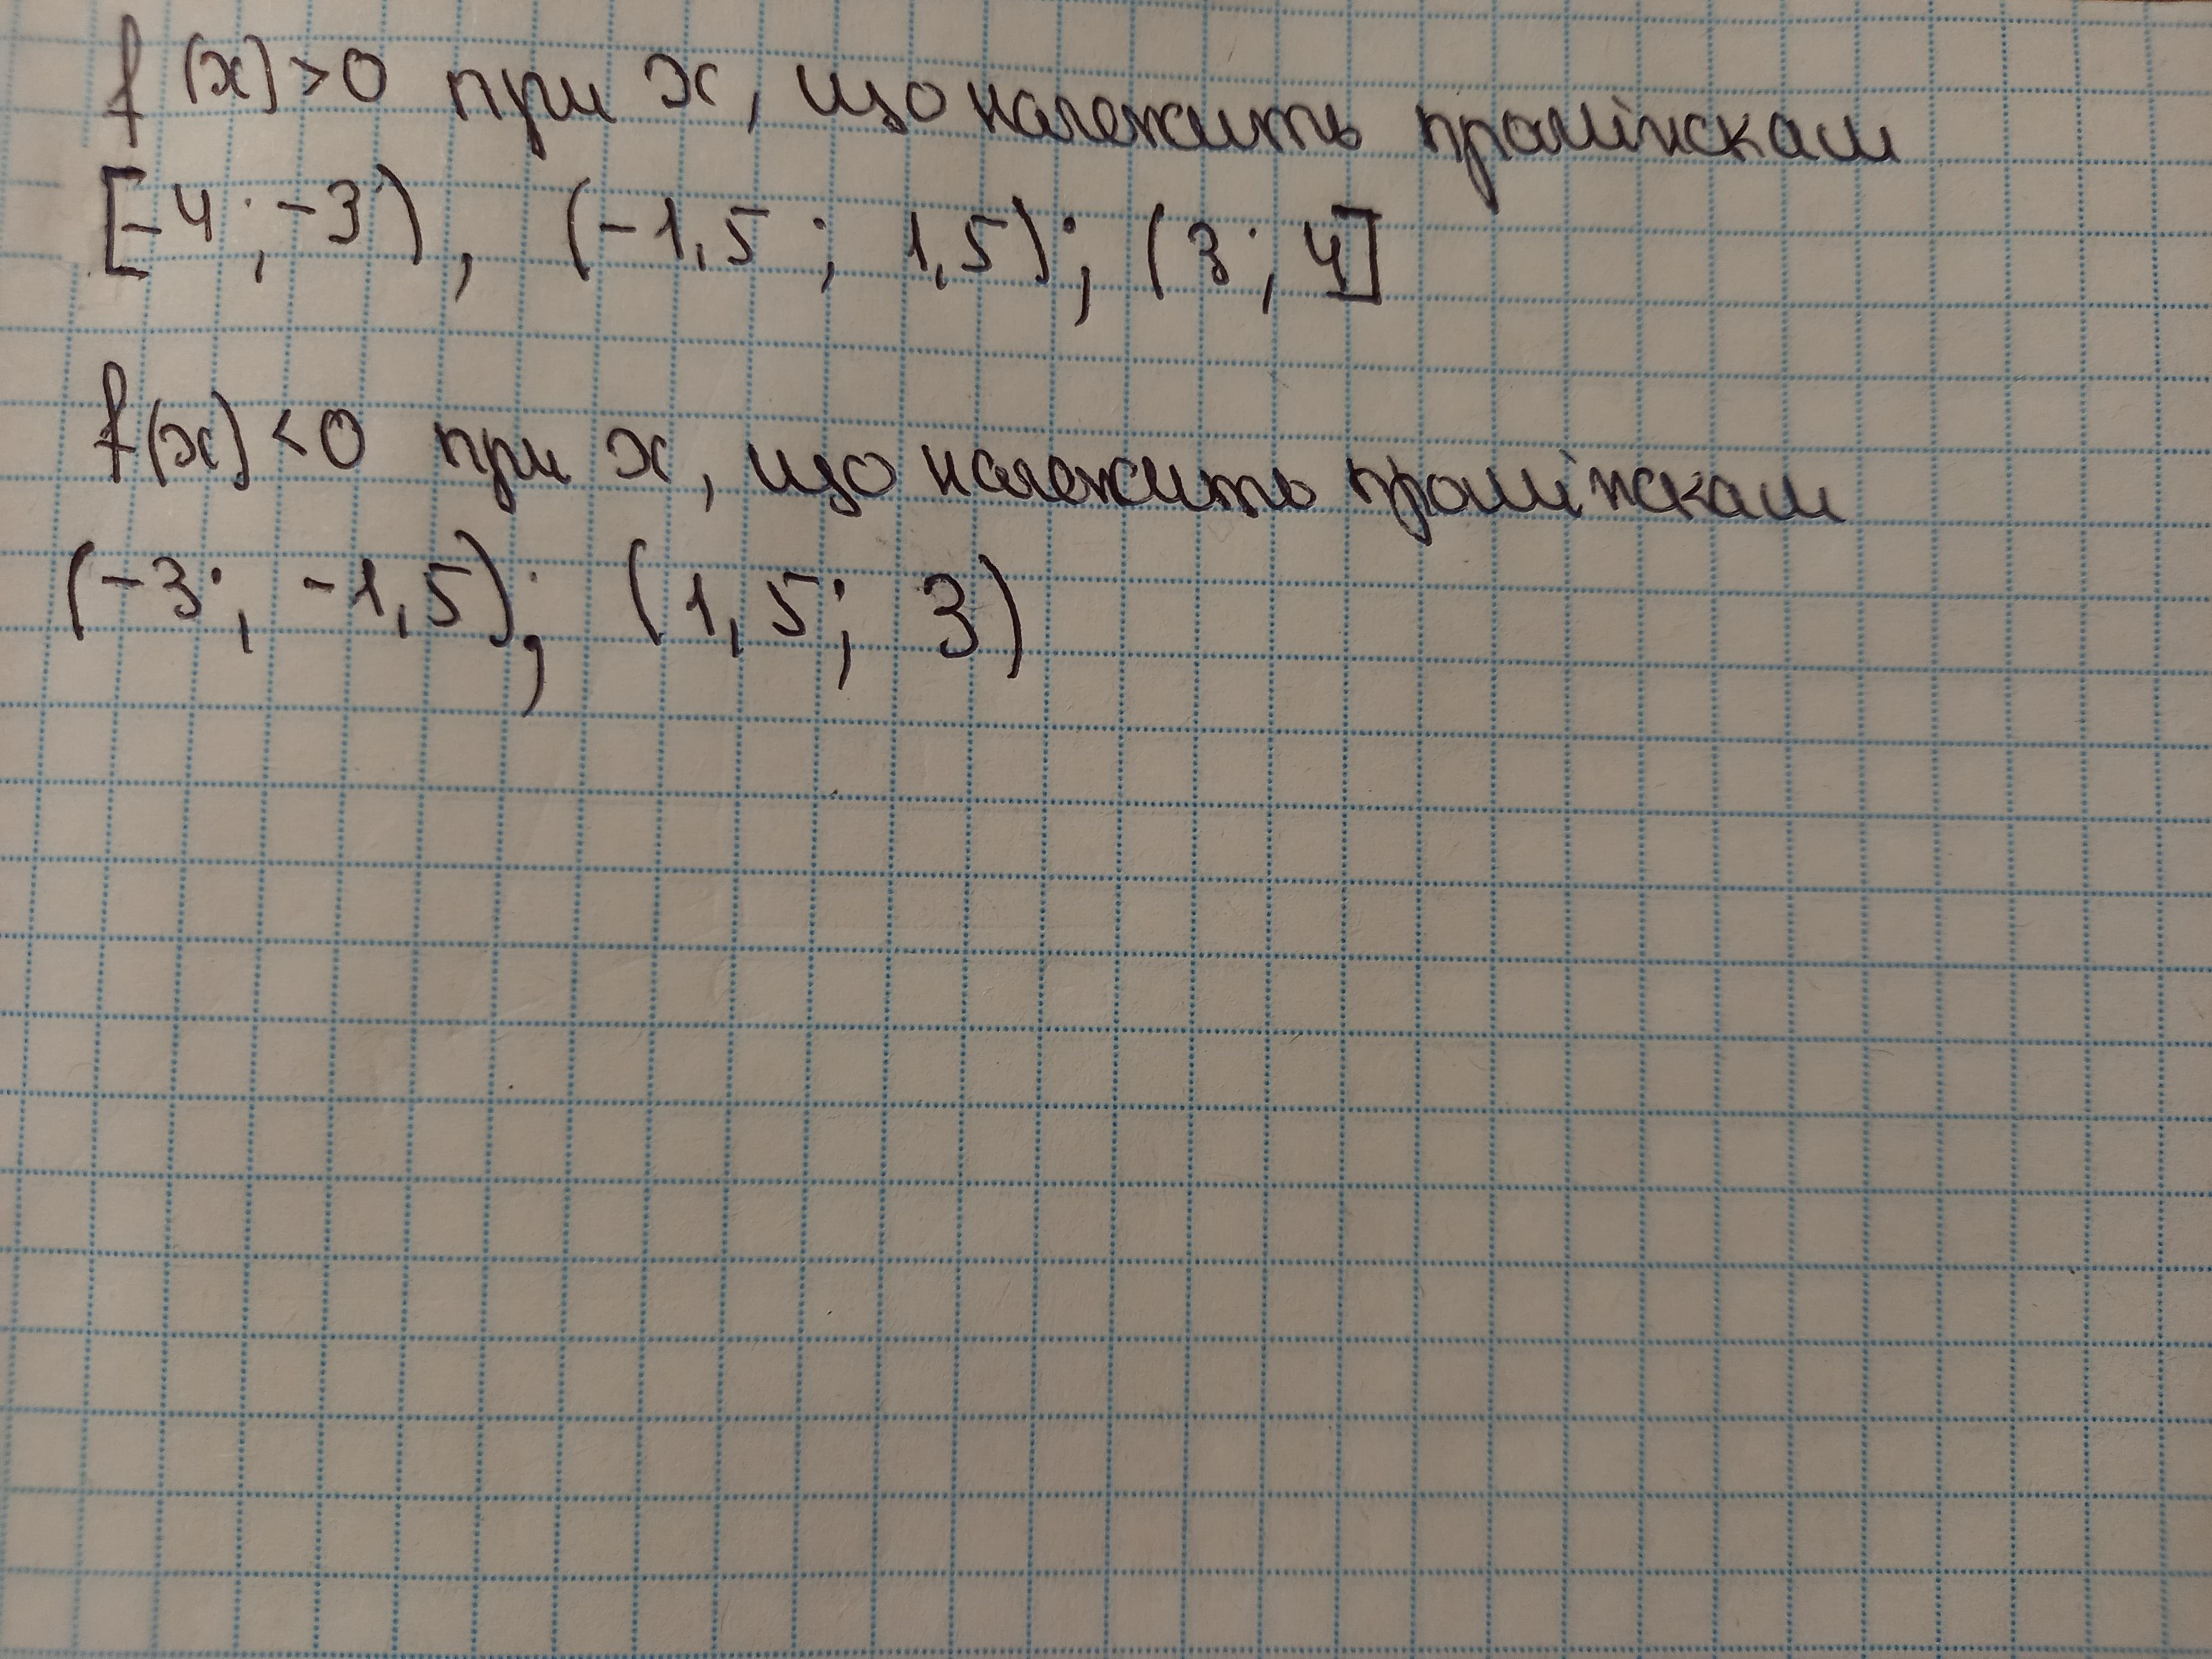 f(x)>0 при x, що належить проміжкам
[-4;-3), (-1,5; 1,5); (3; 4]
f(x)<0 при x, що належить проміжкам
(-3; -1,5); (1,5; 3)